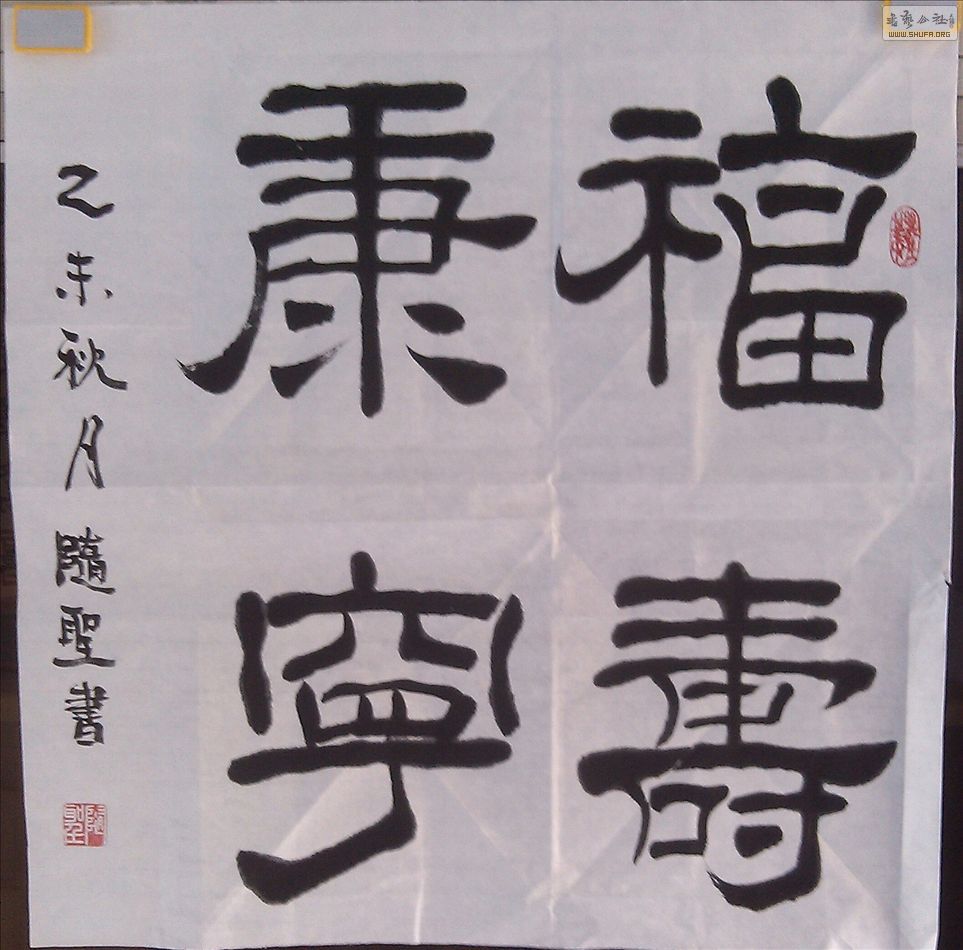 福壽
康寧
乙未秋月隨聖書
隨聖
WWW.SHUFA.ORG